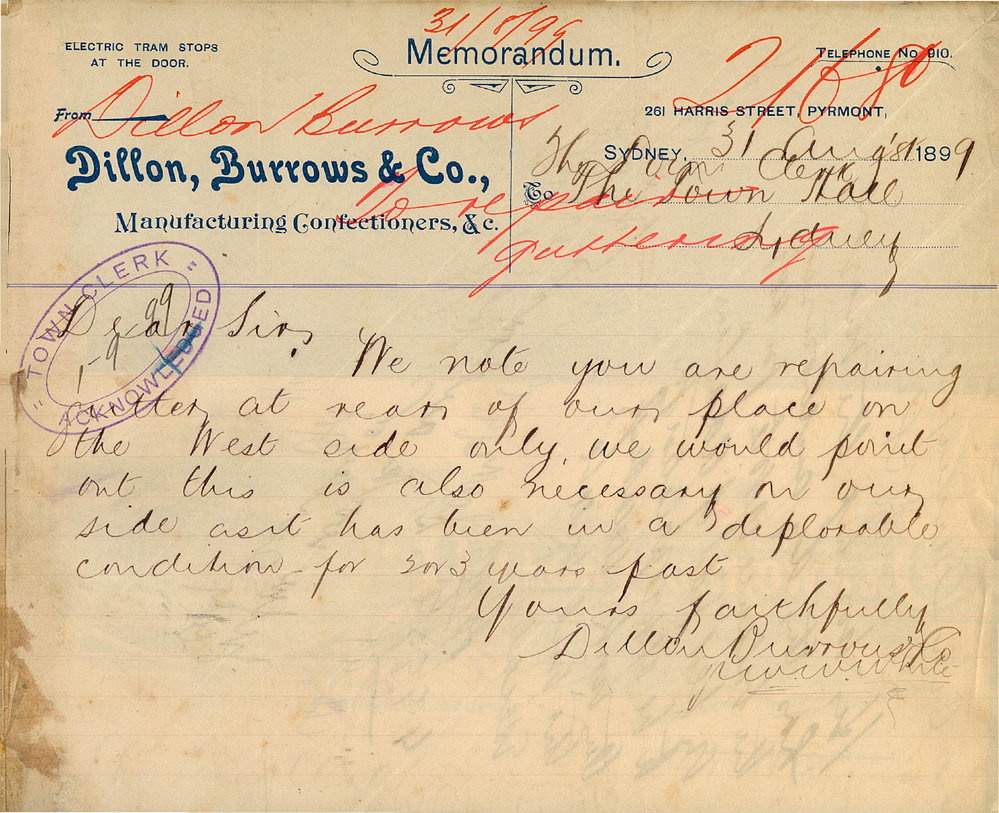 31/8/99
ELECTRIC TRAM STOPS
AT THE DOOR.
Memorandum.
TELEPHONE No 910.
From
Dillon Burrows
261 HARRIS STREET, PYRMONT,
Dillon, Burrows & Co.,
SYDNEY, 31 Aug 1899
The Town Clerk
To The Town Hall
Sydney
Manufacturing Confectioners, &c.
To repair
guttering
TOWN CLERK
1-9 99
ACKNOWLEDGED
Dear Sir,
We note you are repairing
gutter at rear of our place on
the West side only, we would point
out this is also necessary on our
side as it has been in a deplorable
condition for 2 or 3 years past
Yours faithfully
Dillon Burrows & Co